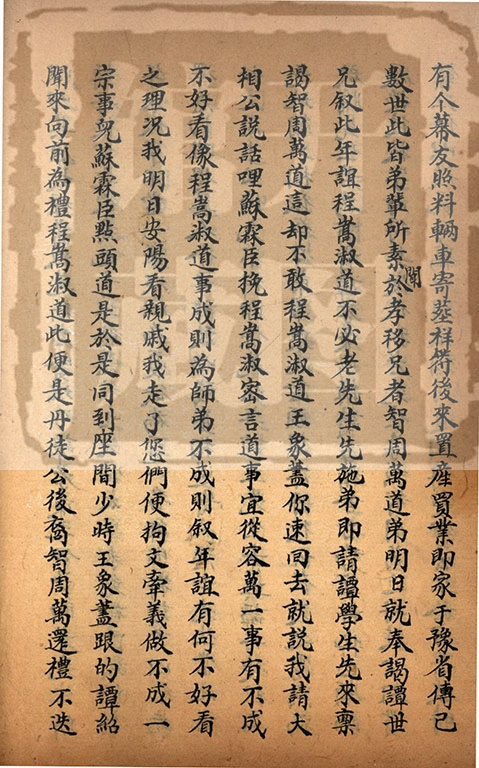 有个幕友照料輛車寄葬祥符後來置產買業即家于豫省傳已
數世此皆弟輩所素聞於孝移兄者智周萬道弟明日就奉謁譚世
兄叙此年誼程嵩淑道不必老先生先施弟即請譚學生先來稟
謁智周萬道這却不敢程嵩淑道王象藎你速回去就説我請大
相公説話哩蘇霖臣挽程嵩淑密言道事宜從容萬一事有不成
不好看像程嵩淑道事成則為師弟不成則叙年誼有何不好看
之理况我明日安陽看親戚我走了您們便拘文牽義做不成一
宗事兒蘇霖臣點頭道是於是同到座間少時王象藎跟的譚紹
聞來向前為禮程嵩淑道此便是丹徒公後裔智周萬還禮不迭